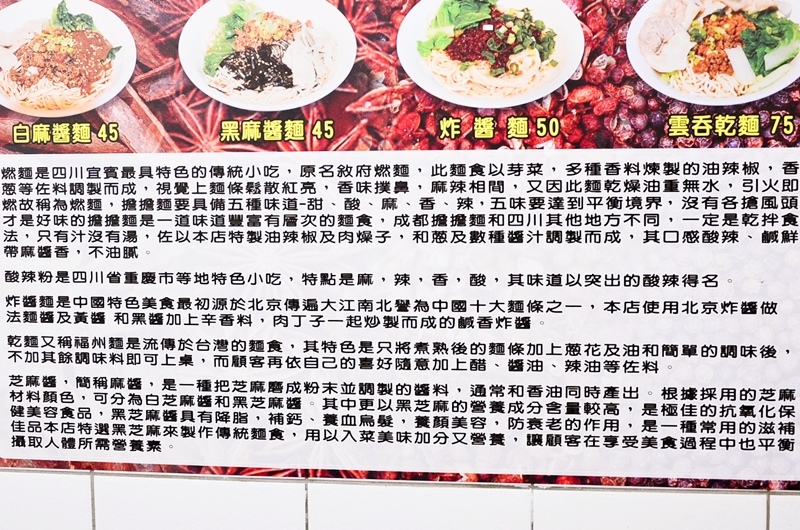 白麻醬麵 45
黑麻醬麵 45
炸 醬 麵 50
雲吞乾麵 75
燃麵是四川宜賓最具特色的傳統小吃，原名敘府燃麵，此麵食以芽菜，多種香料煉製的油辣椒，香
蔥等佐料調製而成，視覺上麵條鬆散紅亮，香味撲鼻，麻辣相間，又因此麵乾燥油重無水，引火即
燃故稱為燃麵，擔擔麵要具備五種味道-甜、酸、麻、香、辣，五味要達到平衡境界，沒有各搶風頭
才是好味的擔擔麵是一道味道豐富有層次的麵食，成都擔擔麵和四川其他地方不同，一定是乾拌食
法，只有汁沒有湯，佐以本店特製油辣椒及肉燥子，和蔥及數種醬汁調製而成，其口感酸辣、鹹鮮
帶麻醬香，不油膩。
酸辣粉是四川省重慶市等地特色小吃，特點是麻，辣，香，酸，其味道以突出的酸辣得名。
炸醬麵是中國特色美食最初源於北京傳遍大江南北譽為中國十大麵條之一，本店使用北京炸醬做
法麵醬及黃醬 和黑醬加上辛香料，肉丁子一起炒製而成的鹹香炸醬。
乾麵又稱福州麵是流傳於台灣的麵食，其特色是只將煮熟後的麵條加上蔥花及油和簡單的調味後，
不加其餘調味料即可上桌，而顧客再依自己的喜好隨意加上醋、醬油、辣油等佐料。
芝麻醬，簡稱麻醬，是一種把芝麻磨成粉末並調製的醬料，通常和香油同時產出。根據採用的芝麻
材料顏色，可分為白芝麻醬和黑芝麻醬。其中更以黑芝麻的營養成分含量較高，是極佳的抗氧化保
健美容食品，黑芝麻醬具有降脂，補鈣、養血烏髮，養顏美容，防衰老的作用，是一種常用的滋補
佳品本店特選黑芝麻來製作傳統麵食，用以入菜美味加分又營養，讓顧客在享受美食過程中也平衡
攝取人體所需營養素。